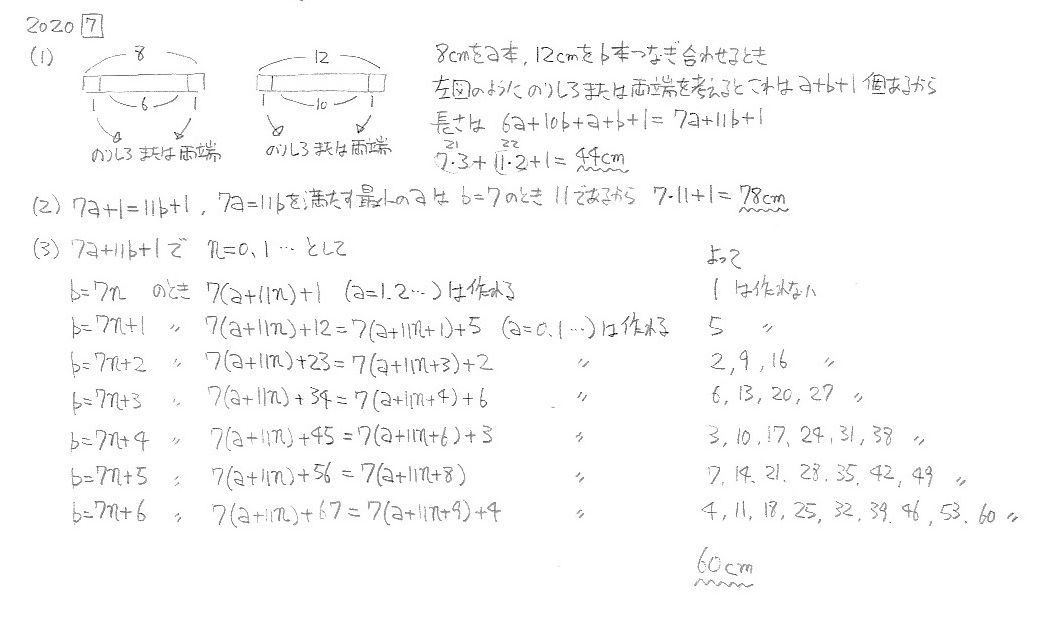 2020 7
(1)
8
12
1 6 1
1 10 1
のりしろまたは両端
のりしろまたは両端
8cmをa本, 12cmをb本つなぎ合わせるとき
左図のようにのりしろまたは両端を考えるとこれはa+b+1個あるから
長さは 6a+10b+a+b+1=7a+11b+1
21 22
7・3+11・2+1=44cm
(2) 7a+1=11b+1, 7a=11bを満たす最小のaは b=7のとき 11であるから 7・11+1=78cm
(3) 7a+11b+1で n=0, 1…として
よって
b=7n のとき 7(a+11n)+1 (a=1.2…)は作れる 1 は作れない
b=7n+1 〃 7(a+11n)+12=7(a+11n+1)+5 (a=0.1…)は作れる 5 〃
b=7n+2 〃 7(a+11n)+23=7(a+11n+3)+2 〃 2, 9, 16 〃
b=7n+3 〃 7(a+11n)+34=7(a+11n+4)+6 〃 6, 13, 20, 27 〃
b=7n+4 〃 7(a+11n)+45=7(a+11n+6)+3 〃 3, 10, 17, 24, 31, 38 〃
b=7n+5 〃 7(a+11n)+56=7(a+11n+8) 〃 7, 14, 21, 28, 35, 42, 49 〃
b=7n+6 〃 7(a+11n)+67=7(a+11n+9)+4 〃 4, 11, 18, 25, 32, 39, 46, 53, 60 〃
60cm